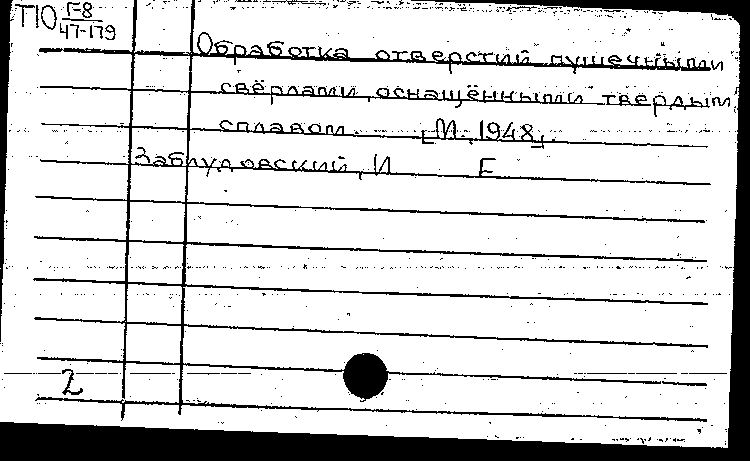 ТЮ Г-8
47-179
Обработка отверстий пушечными
свёрлами, оснащёнными твердым
сплавом. [М, 1948].
Заблудовский, И Е
2